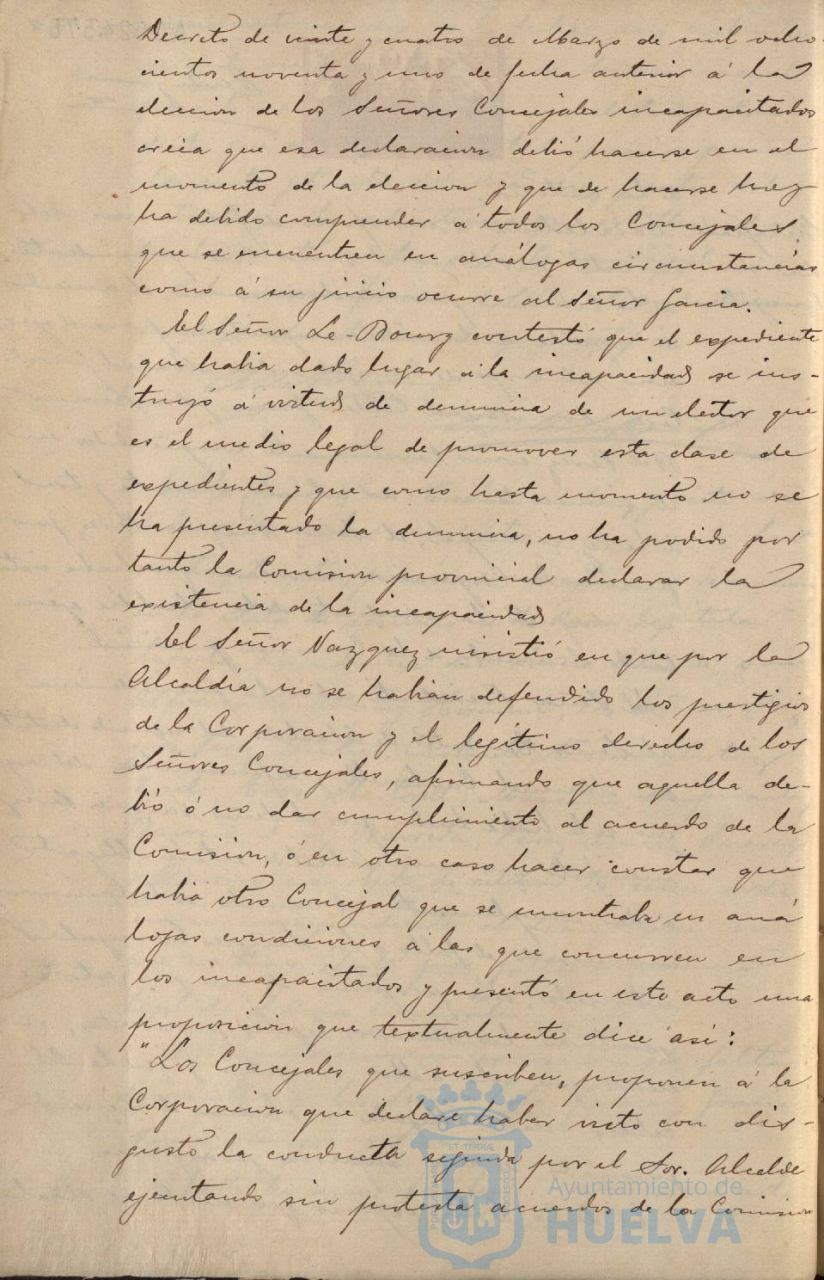 Decreto de veinte y cuatro de Marzo de mil ocho
cientos noventa y uno de fecha anterior á la
eleccion de los Señores Concejales incapacitados
creia que esa declaracion debió hacerse en el
momento de la eleccion y que de hacerse hoy
ha debido comprender á todos los Concejales
que se encuentren en análogas circunstancias
como á su juicio ocurre al Señor Garcia.
El Señor Le-Bourg contestó que el expediente
que habia dado lugar á la incapacidad se ins-
truyó á virtud de denuncia de un elector que
es el medio legal de promover esta clase de
expedientes y que como hasta momento no se
ha presentado la denuncia, no ha podido por
tanto la Comision provincial declarar la
existencia de la incapacidad
El Señor Vazquez insistió en que por la
Alcaldia no se habian defendido los prestigios
de la Corporacion y el legitimo derecho de los
Señores Concejales, afirmando que aquella de-
bió ó no dar cumplimiento al acuerdo de la
Comision, ó en otro caso hacer constar que
habia otro Concejal que se encontraba en aná
logas condiciones á las que concurren en
los incapacitados y presentó en este acto una
proposicion que textualmente dice asi:
"Los Concejales que suscriben, proponen á la
Corporacion que declare haber visto con dis-
gusto la conducta seguida por el Sor. Alcalde
ejecutando sin protesta acuerdos de la Comision
Ayuntamiento de
HUELVA